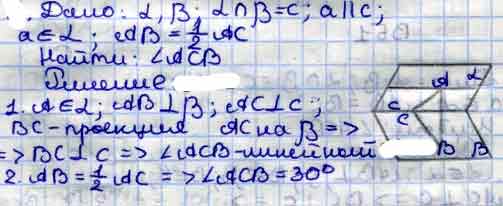 Дано: α, β; α∩β=c; a||c;
a∈α; AB=½AC
Найти: ∠ACB
Решение
1. A∈α; AB⊥β; AC⊥c;
BC-проекция AC на β =>
=> BC⊥c => ∠ACB-линейный
2. AB=½AC => ∠ACB=30°
A α
c
C
B β